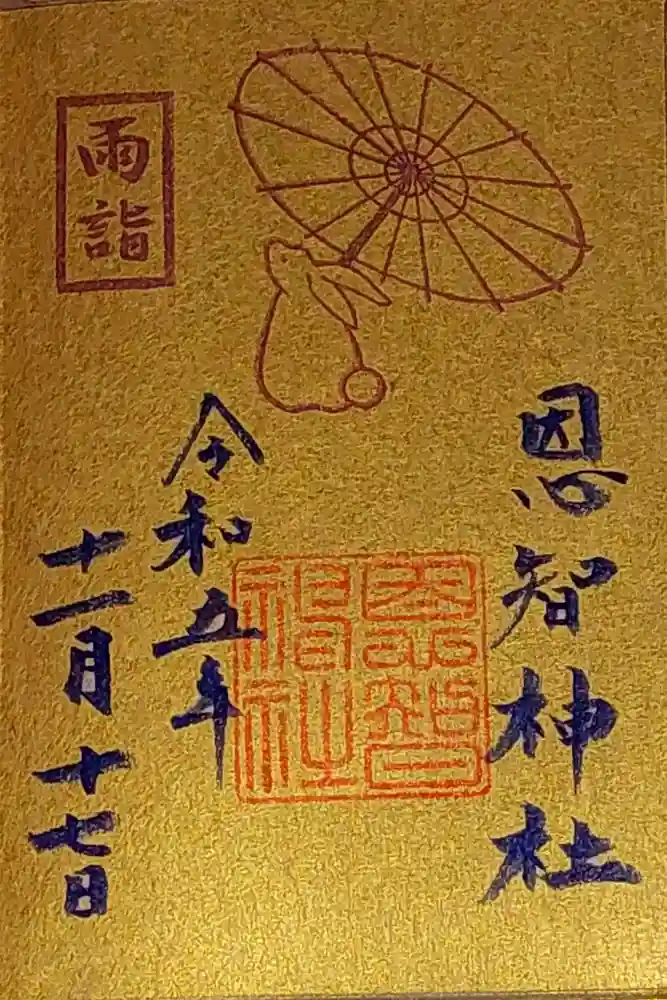 恩智神社
恩智神社
令和五年
十一月十七日
雨詣